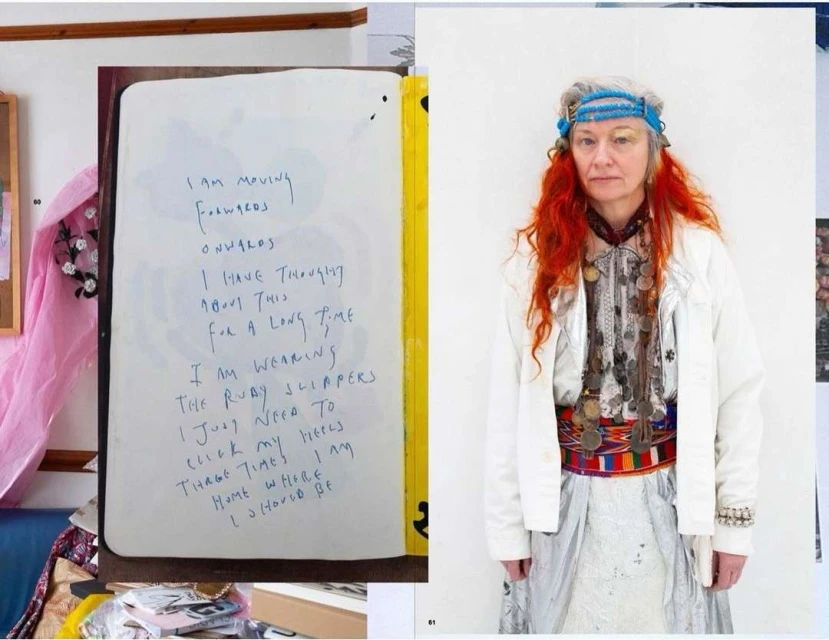 60
I AM MOVING
FORWARDS
ONWARDS
I HAVE THOUGHT
ABOUT THIS
FOR A LONG TIME
I AM WEARING
THE RUBY SLIPPERS
I JUST NEED TO
CLICK MY HEELS
THREE TIMES I AM
HOME WHERE
I SHOULD BE
61